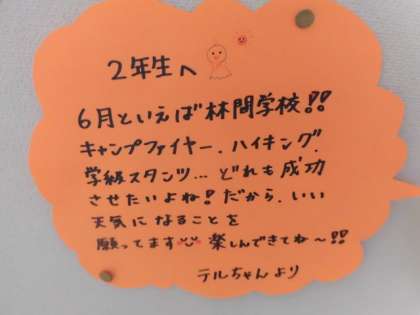 2年生へ
6月といえば林間学校!!
キャンプファイヤー、ハイキング、
学級スタンツ...どれも成功
させたいよね!だから、いい
天気になることを
願ってます 楽しんできてね〜!!
テルちゃんより